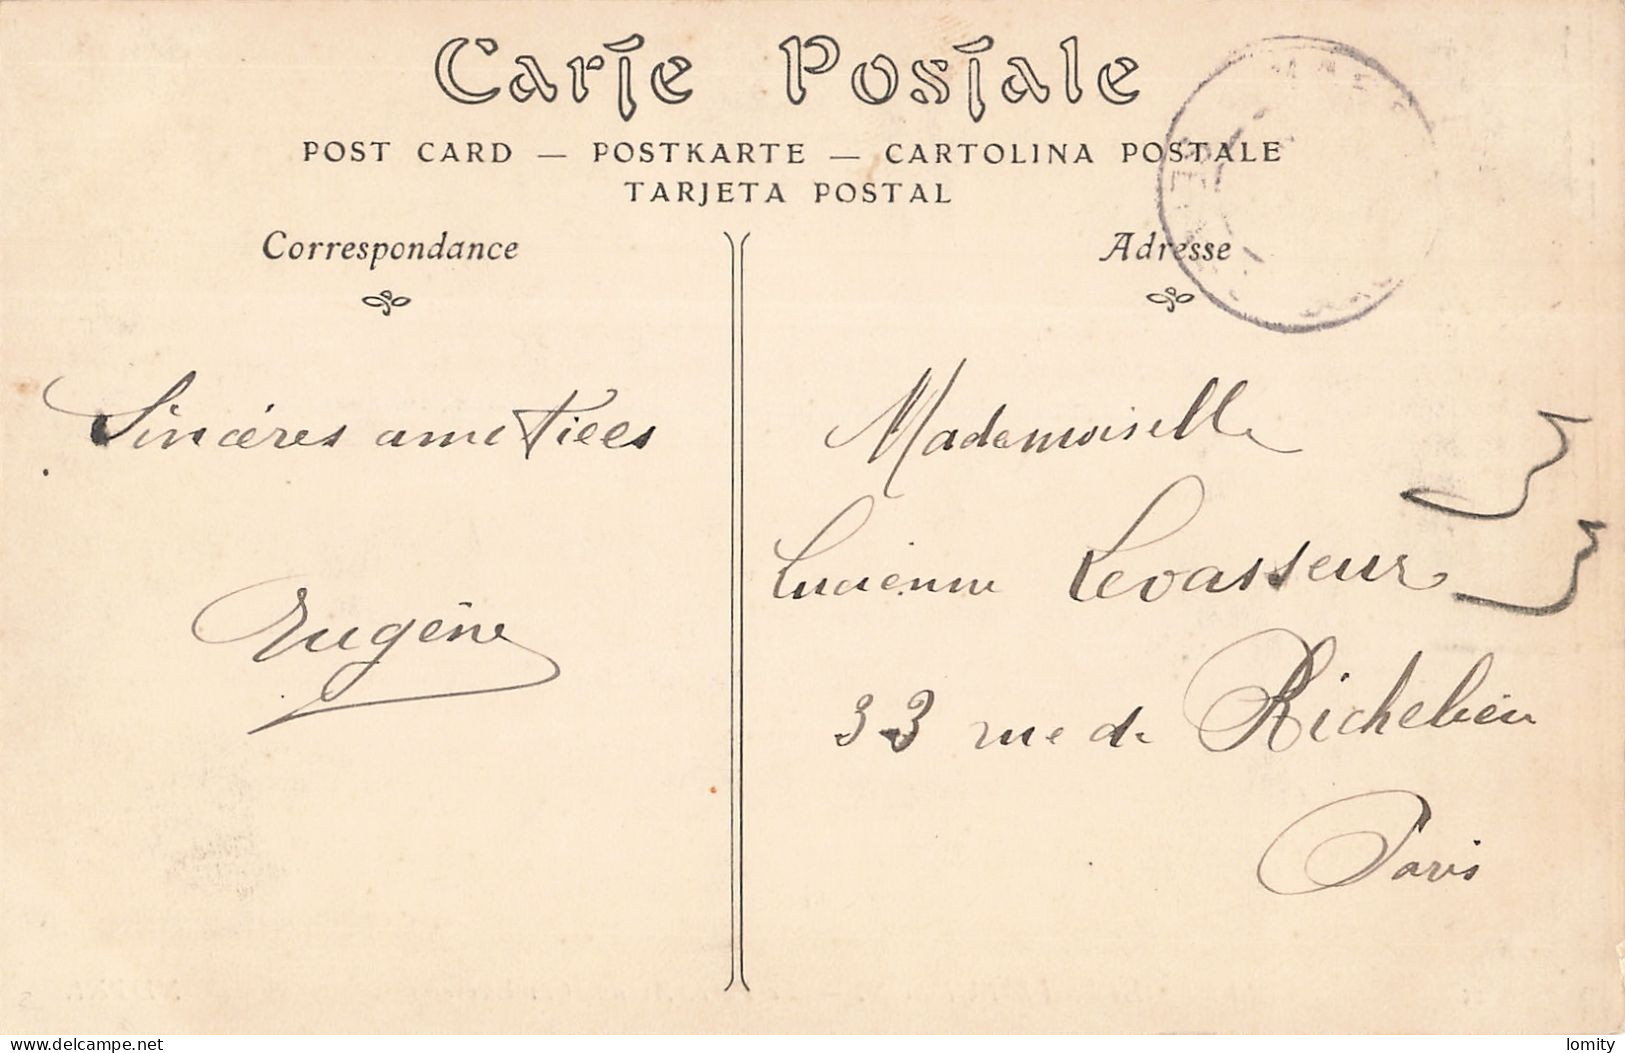 Carte Postale
POST CARD — POSTKARTE — CARTOLINA POSTALE
TARJETA POSTAL
Correspondance
Sincères ametiees
Eugène
Adresse
Mademoiselle
Lucienne Levasseur
33 rue de Richelieu
Paris
www.delcampe.net
lomity